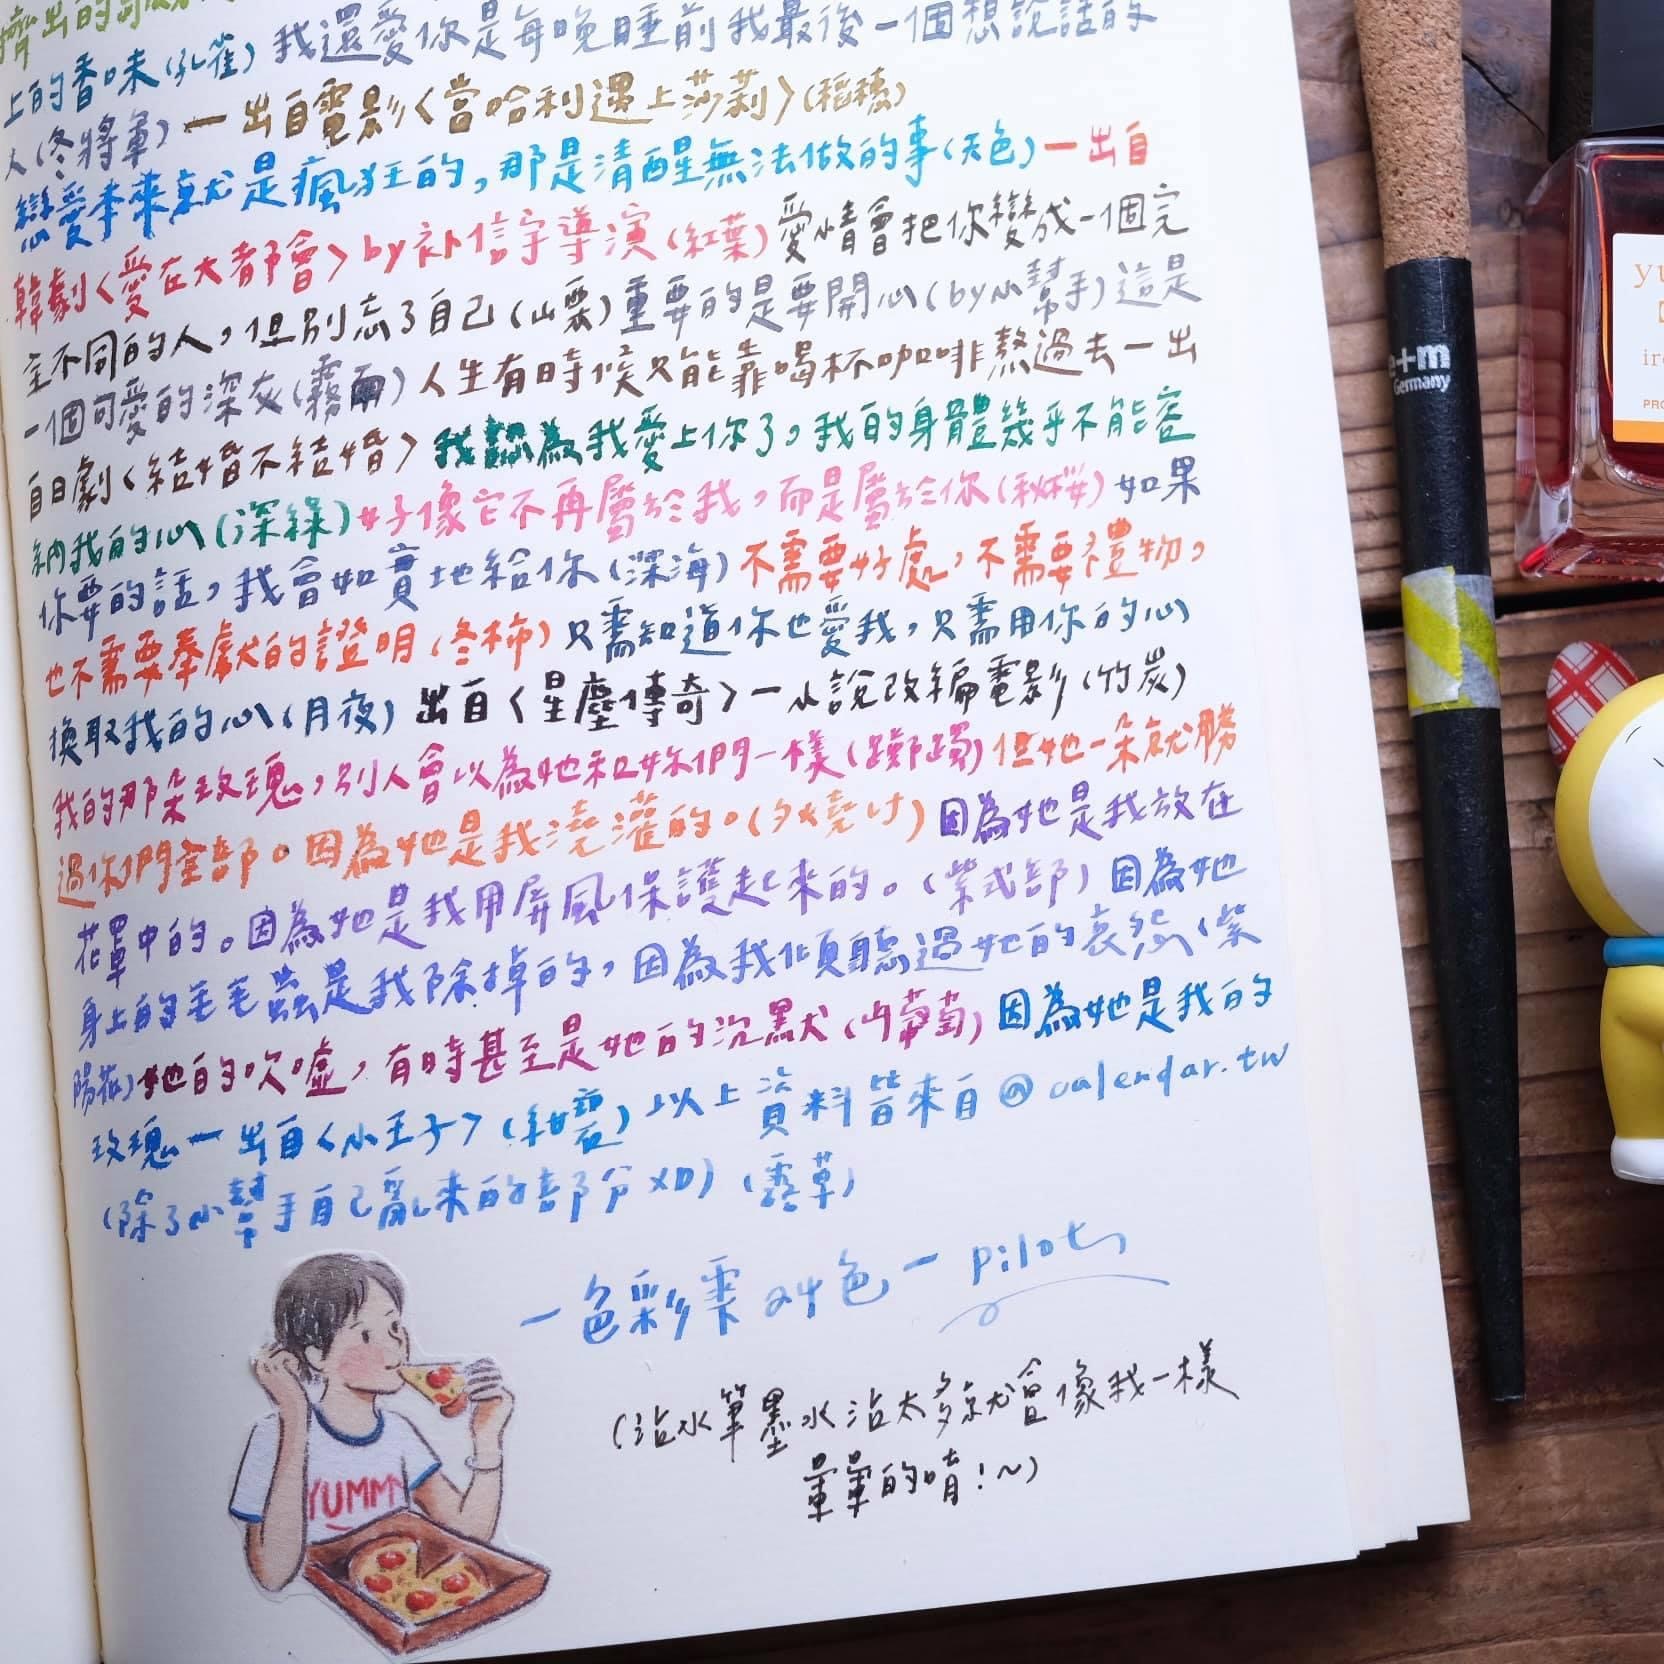 擠出的
上的香味(孔雀) 我還愛你是每晚睡前我最後一個想說話的
人(冬將軍) 一出自電影〈當哈利遇上莎莉〉(稻穗)
戀愛本來就是瘋狂的,那是清醒無法做的事(天色) 一出自
韓劇〈愛在大都會〉by朴信宇導演(紅葉) 愛情會把你變成一個完
全不同的人,但別忘了自己(山栗) 重要的是要開心(by小幫手) 這是
一個可愛的深灰(霧雨) 人生有時候只能靠喝杯咖啡熬過去一出
自日劇〈結婚不結婚〉 我認為我愛上你了。我的身體幾乎不能容
納我的心(深綠) 好像它不再屬於我,而是屬於你(秋桜) 如果
你要的話,我會如實地給你(深海) 不需要好處,不需要禮物,
也不需要奉獻的證明(冬柿) 只需知道你也愛我,只需用你的心
換取我的心(月夜) 出自〈星塵傳奇〉一小說改編電影(竹炭)
我的那朵玫瑰,別人會以為她和妳們一樣(躑躅) 但她一朵就勝
過你們全部。因為她是我澆灌的。(夕燒け) 因為她是我放在
花罩中的。因為她是我用屏風保護起來的。(紫式部) 因為她
身上的毛毛蟲是我除掉的,因為我傾聽過她的哀怨(紫
陽花) 她的吹噓,有時甚至是她的沉默(山葡萄) 因為她是我的
玫瑰一出自〈小王子〉(紺碧) 以上資料皆來自@calendar.tw
(除了小幫手自己亂來的部分XD) (露草)
一色彩雫24色一 Pilot
(沾水筆墨水沾太多就會像我一樣
暈暈的唷!~)
YUMMY
e+m
Germany
yu
ir
PRO